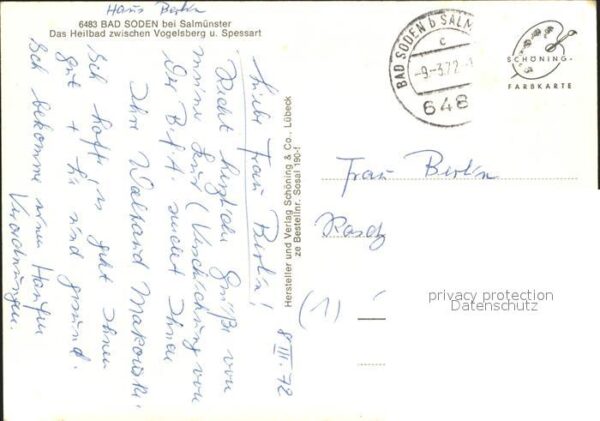 Hans Berlin
6483 BAD SODEN bei Salmünster
Das Heilbad zwischen Vogelsberg u. Spessart
Liebe Frau Berlin!
Recht herzliche Grüße von
meiner Kur (Verschickung von
der BfA. sendet Ihnen
Ihre Waltraud Makowski.
Ich hoffe, es geht Ihnen
gut + Sie sind gesund.
Ich bekomme einen Haufen
Verordnungen.
8 III. 72
(1)
Hersteller und Verlag Schöning & Co., Lübeck
ze Bestellnr. Sosal 190-f
BAD SODEN b SALM
c
-9-3.72-
648
SCHÖNING-
FARBKARTE
Frau Berlin
privacy protection
Datenschutz